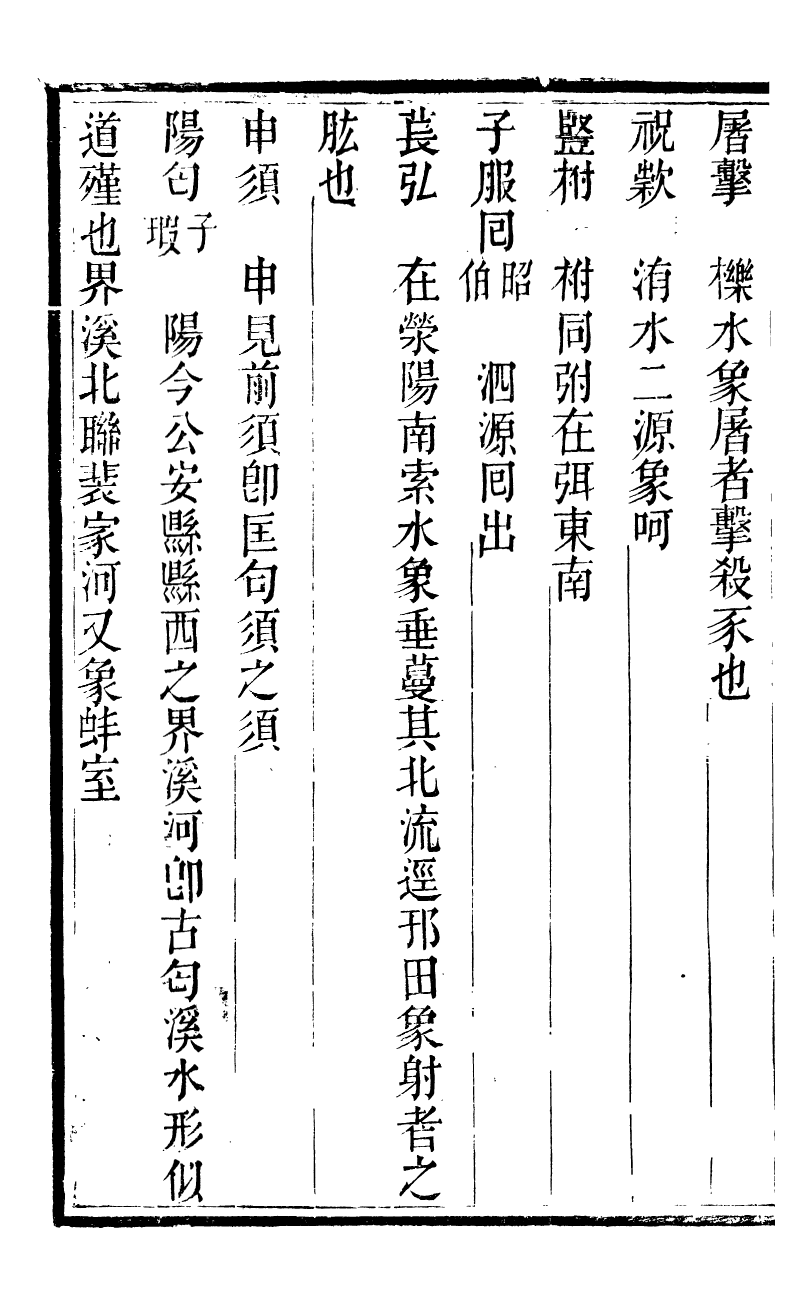 屠擊　櫟水象屠者擊殺豕也
祝款　洧水二源象呵
豎柎　柎同弣在弭東南
子服囘昭伯　泗源囘出
萇弘　在滎陽南索水象垂蔓其北流逕邗田象射者之
肱也
申須　申見前須卽匡句須之須
陽匄子瑕　陽今公安縣縣西之界溪河卽古匄溪水形似
道殣也界溪北聯裴家河又象蚌室